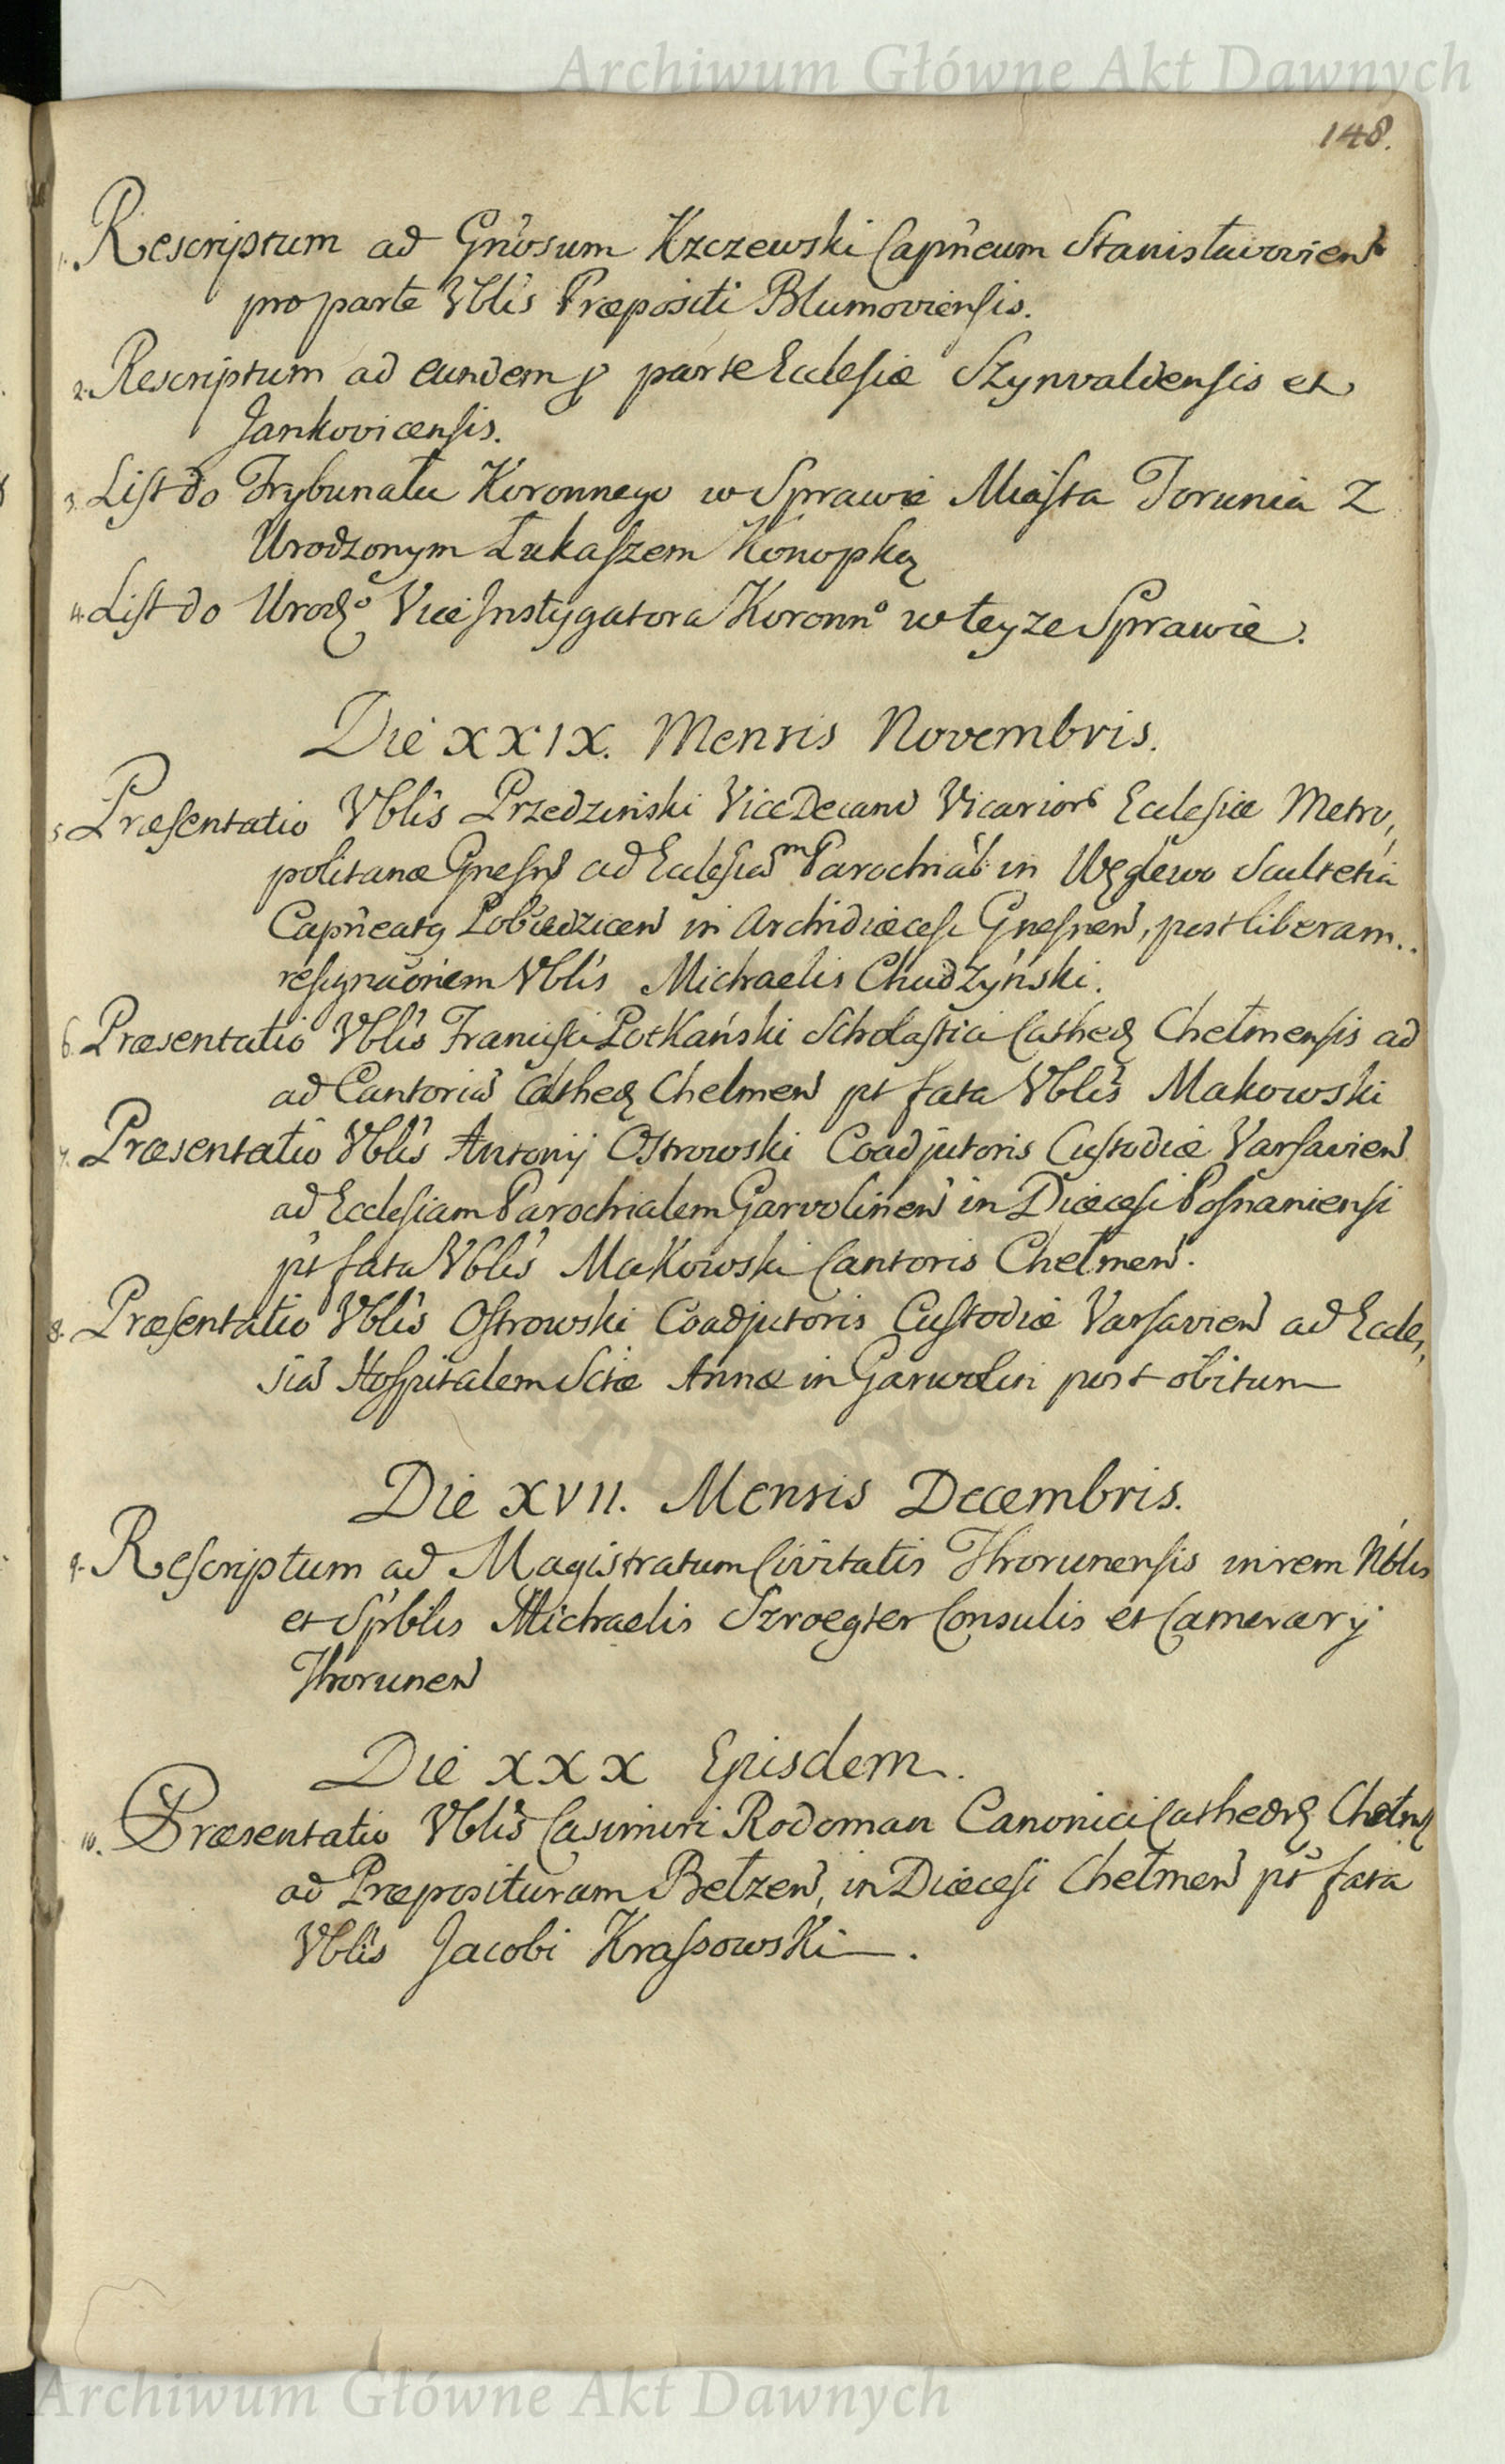 Archiwum Główne Akt Dawnych
148.
1. Rescriptum ad Gnosum Krczewski Capneum Stanisławovien
pro parte Vblis Præpositi Blumoviensis.
2. Rescriptum ad eundem p parte Ecclesiæ Szynvaldensis et
Jankovicensis.
3. List do Trybunału Koronnego w Sprawie Miasta Torunia z
Urodzonym Łukaszem Konopką
4. List do Urodzo Vice Instygatora Koronno w teyze Sprawie.
Die XXIX. Mensis Novembris.
5. Præsentatio Vblis Przedzinski Vice Decani Vicarior Ecclesiæ Metro,
politanæ Gnesn ad Ecclesiam Parochial in Węglewo Scultetia
Capneatq Pobiedzicen in Archidiæcesi Gnesnen, post liberam
resignaonem Vblis Michaelis Chudzyński.
6. Præsentatio Vblis Francisci Potkański Scholastici Cathed Chełmensis ad
ad Cantoria Cathed Chelmen pt fata Vblis Makowski
7. Præsentatio Vblis Antonij Ostrowski Coadjutoris Custodiæ Varsavien
ad Ecclesiam Parochialem Garvolinen in Diæcesi Posnaniensi
pt fata Vblis Makowski Cantoris Chełmen.
8. Præsentatio Vblis Ostrowski Coadjutoris Custodiæ Varsavien ad Eccle,
sia Hospitalem Sctæ Annæ in Garwolin post obitum
Die XVII. Mensis Decembris.
9. Rescriptum ad Magistratum Civitatis Thorunensis in rem Nblis
et Spblis Michaelis Szroegter Consulis et Camerarij
Thorunen
Die XXX Ejusdem.
10. Præsentatio Vblis Casimiri Rodoman Canonici Cathedr Chełm
ad Præposituram Bełzen, in Diæcesi Chełmen pt fata
Vblis Jacobi Krassowski.
Archiwum Główne Akt Dawnych